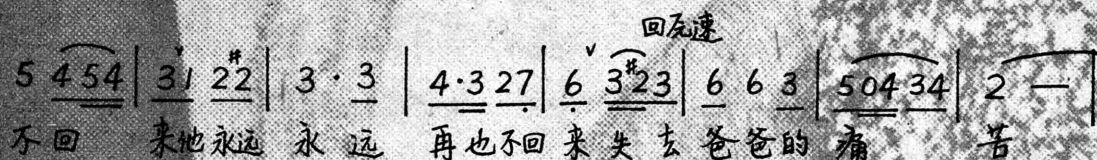 回原速
5 4 5 4 | 3 1 2 #2 | 3 · 3 | 4·3 2 7 | 6 3 #2 3 | 6 6 3 | 5 0 4 3 4 | 2 — |
不回 来他永远 永 远 再也不回 来失去 爸爸的 痛 苦